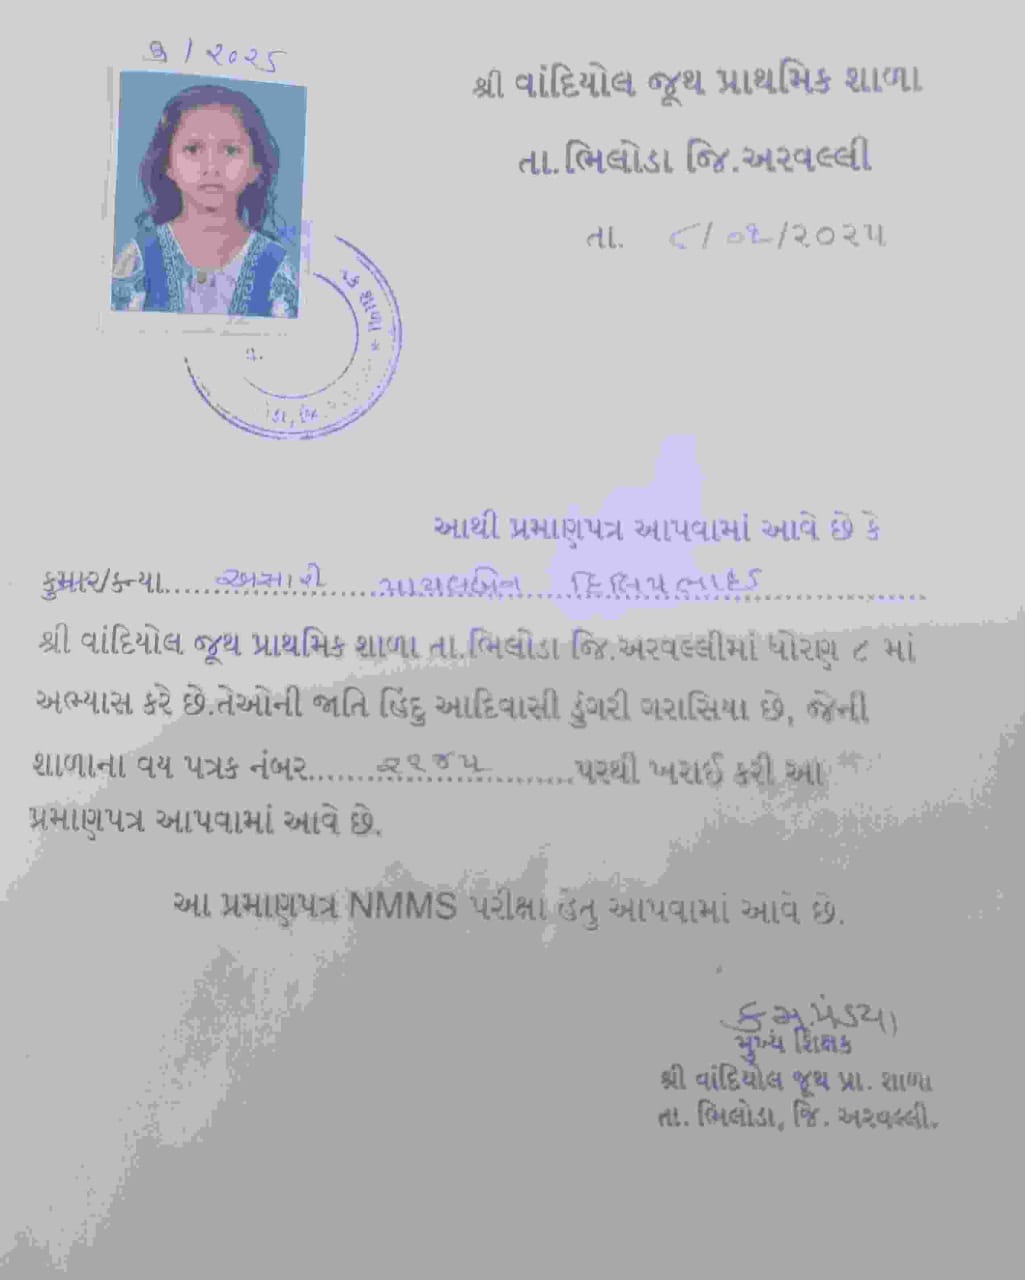 શ્રી વાંદિયોલ જૂથ પ્રાથમિક શાળા
તા.ભિલોડા જિ.અરવલ્લી
તા. ૮/૦૧/૨૦૨૫
ક શાળા *
આથી પ્રમાણપત્ર આપવામાં આવે છે કે
કુમાર/કન્યા.....અસારી પાયલબેન દિલિપભાઈ.....
શ્રી વાંદિયોલ જૂથ પ્રાથમિક શાળા તા.ભિલોડા જિ.અરવલ્લીમાં ધોરણ ૮ માં
અભ્યાસ કરે છે.તેઓની જાતિ હિંદુ આદિવાસી ડુંગરી ગરાસિયા છે, જેની
શાળાના વય પત્રક નંબર.....૨૧૪૫.....પરથી ખરાઈ કરી આ
પ્રમાણપત્ર આપવામાં આવે છે.
આ પ્રમાણપત્ર NMMS પરીક્ષા હેતુ આપવામાં આવે છે.
મુખ્ય શિક્ષક
શ્રી વાંદિયોલ જૂથ પ્રા. શાળા
તા. ભિલોડા, જિ. અરવલ્લી.